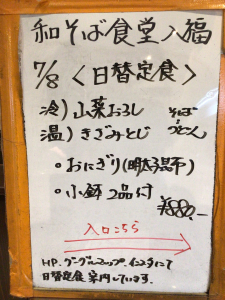 和そば食堂 八福
7/8 〈日替定食〉
冷) 山菜おろし そば
温) きざみとじ うどん
・おにぎり(明太昆布)
・小鉢 2品付
¥880.-
入口こちら
HP. グーグルマップ. インスタにて
日替定食 案内しています.